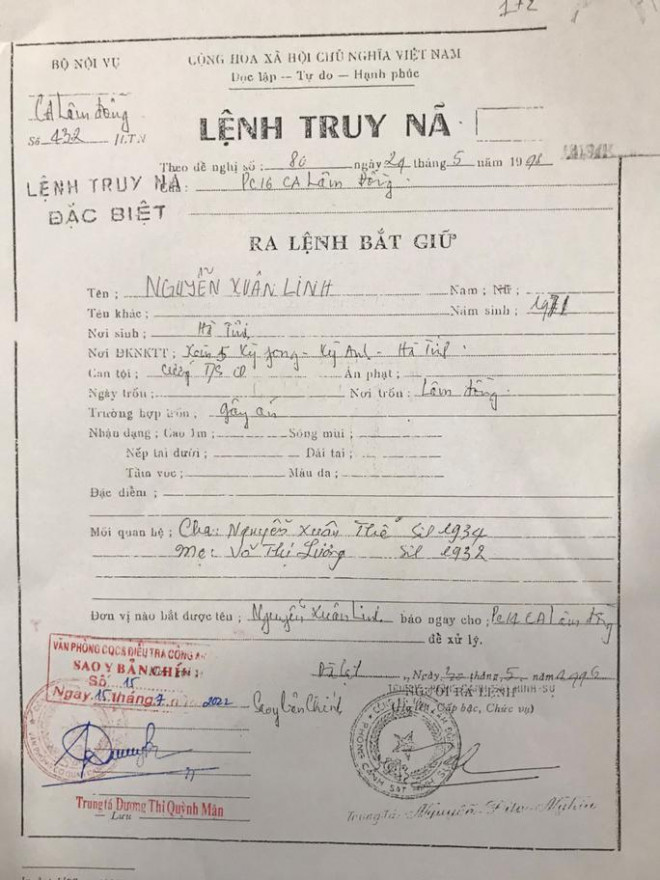 1+2
BỘ NỘI VỤ
CỘNG HOA XÃ HỘI CHỦ NGHĨA VIỆT NAM
Độc lập — Tự do — Hạnh phúc
CA Lâm Đồng
Số 432 /LTN
LỆNH TRUY NÃ
Theo đề nghị số : 80 ngày 29 tháng 5 năm 19
PC16 CA Lâm Đồng.
LỆNH TRUY NÃ
ĐẶC BIỆT
RA LỆNH BẮT GIỮ
Tên ; NGUYỄN XUÂN LINH Nam ; Nữ ;
Tên khác ; Năm sinh ; 1971
Nơi sinh ; Hà Tĩnh
Nơi ĐKNKTT ; Xóm 5 Kỳ Long - Kỳ Anh - Hà Tĩnh.
Can tội ; Cướp TS CD Án phạt ;
Ngày trốn ; Nơi trốn ; Lâm Đồng.
Trường hợp trốn ; gây án
Nhận dạng ; Cao 1m ; Sống mũi ;
Nếp tai dưới ; Dái tai ;
Tầm vóc ; Màu da ;
Đặc điểm ;
Mối quan hệ ; Cha: Nguyễn Xuân Thế S/l 1934
Mẹ: Võ Thị Lương S/l 1932
Đơn vị nào bắt được tên ; Nguyễn Xuân Linh báo ngay cho ; PC16 CA Lâm Đồng
để xử lý.
VĂN PHÒNG CQCS ĐIỀU TRA CÔNG AN
SAO Y BẢN CHÍNH
Số 15
Ngày 15 tháng 7 2022
Sao y bản chính
Đà Lạt , Ngày tháng 5 năm 1996
NGƯỜI RA LỆNH
(Ký tên, Cấp bậc, Chức vụ)
CẢNH SÁT
Trung tá Dương Thị Quỳnh Mân
— Lưu
Trung tá: Nguyễn